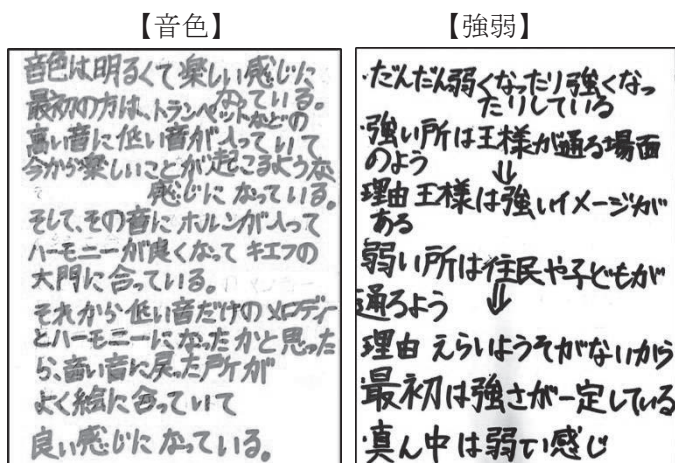 【音色】
音色は明るくて楽しい感じに
なっている。
最初の方は、トランペットなどの
高い音に低い音が入っていて
今から楽しいことが起こるような
感じになっている。
そして、その音にホルンが入って
ハーモニーが良くなってキエフの
大門に合っている。
それから低い音だけのメロディー
とハーモニーになったかと思った
ら、高い音に戻った所が
よく絵に合っていて
良い感じになっている。
【強弱】
・だんだん弱くなったり強くなっ
たりしている
・強い所は王様が通る場面
のよう
⇓
理由 王様は強いイメージが
ある
弱い所は住民や子どもが
通るよう
⇓
理由 えらいようそがないから
・最初は強さが一定している
・真ん中は弱い感じ